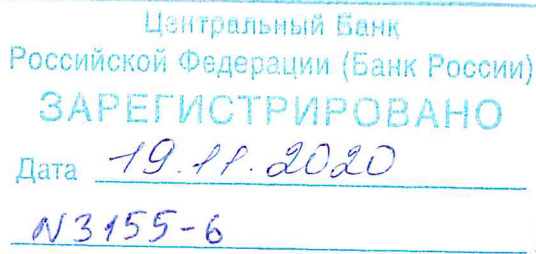 Центральный Банк
Российской Федерации (Банк России)
ЗАРЕГИСТРИРОВАНО
Дата 19.11.2020
N3155-6